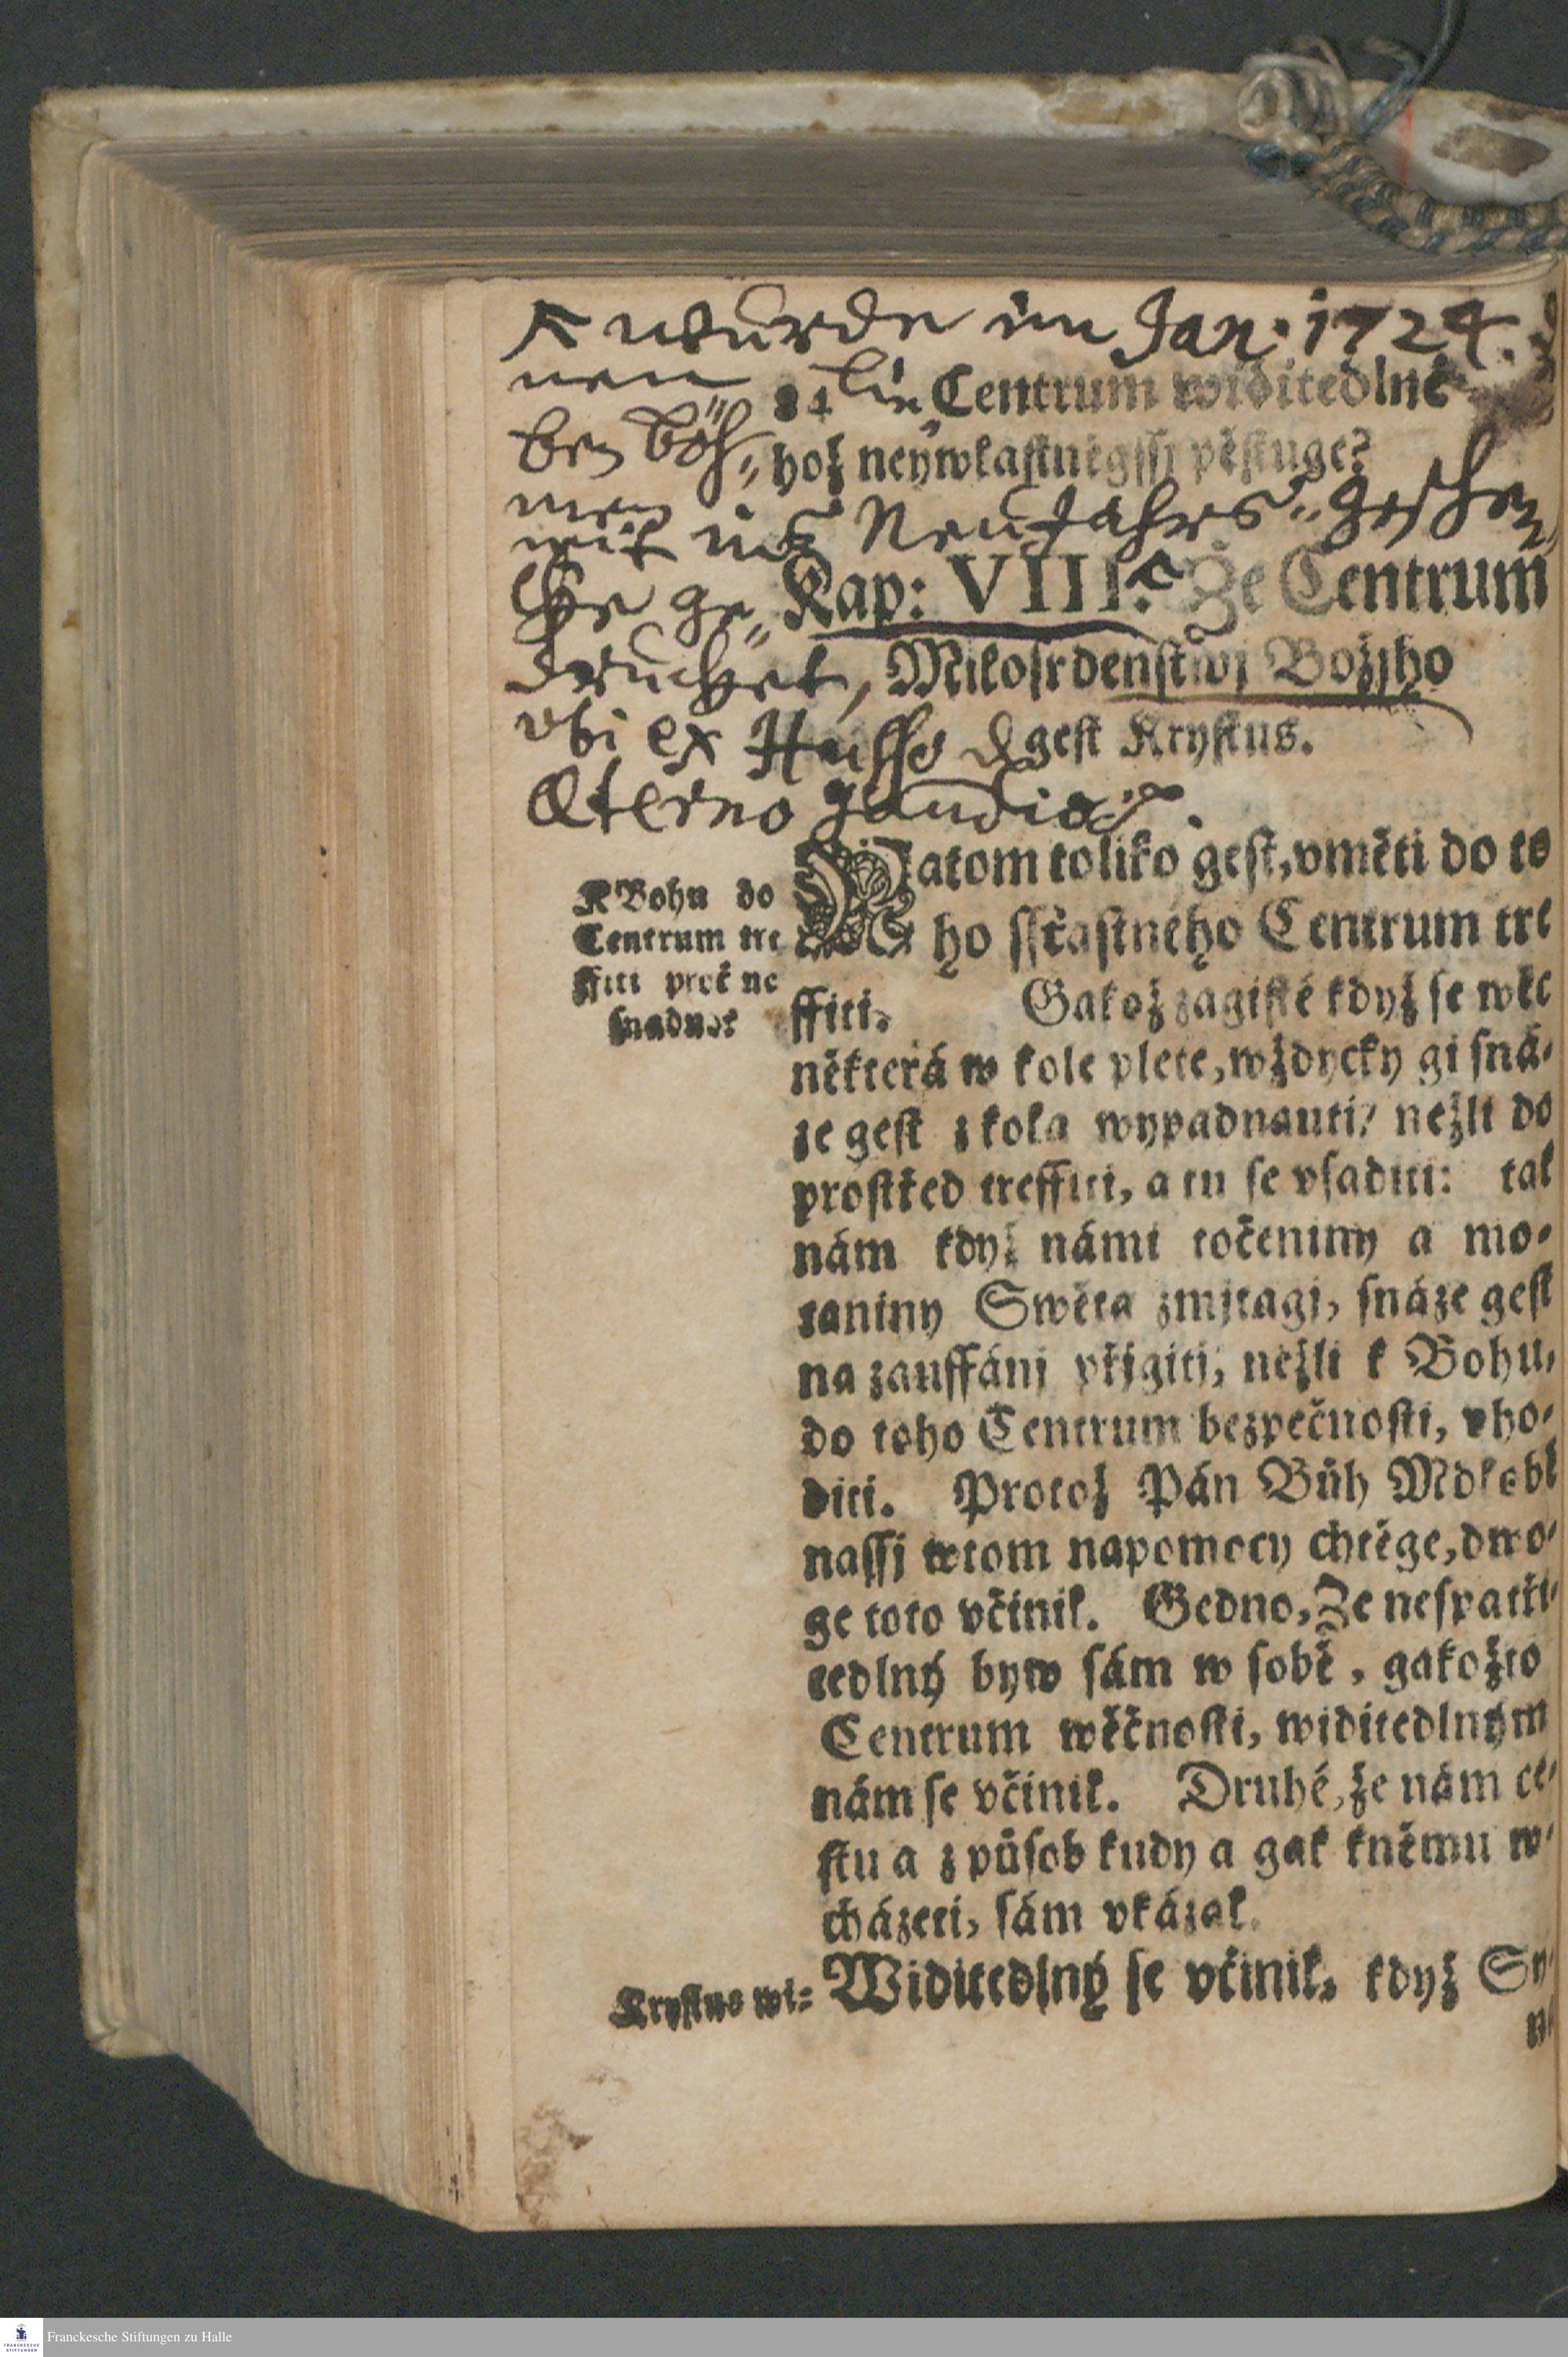 wurde im Jan. 1724.
84 Centrum widitedlné
hož neywlastněgssj pěstuge?
mit ins NeuJahrs-
Kap: VIII. Že Centrum
Milosrdenstwj Božjho
gest Krystus.
ubi ex Husso &
Æterno gaudio
Natom toliko gest, vměti do to
ho sstastného Centrum tre
ffiti. Gakož zagisté když se wěc
některá w kole plete, wždycky gi sná-
ze gest z kola wypadnauti, nežli do
prostřed treffiti, a tu se vsaditi: tak
nám když námi točeniny a mo-
taniny Swěta zmjtagj, snáze gest
na zauffánj přigiti, nežli k Bohu,
do toho Centrum bezpečnosti, vho-
diti. Protož Pán Bůh Mdlobě
nassj wtom napomocy chtěge, dwo-
ge toto včinil. Gedno, Že nespatři-
tedlný byw sám w sobě, gakožto
Centrum wěčnosti, widitedlným
nám se včinil. Druhé, že nám ce-
stu a způsob kudy a gak kněmu w-
cházeti, sám vkázal.
Widitedlný se včinil, když Sy-
n
KBohu do
Centrum tre
ffiti proč ne
snadno?
Krystus wi-
Franckesche Stiftungen zu Halle